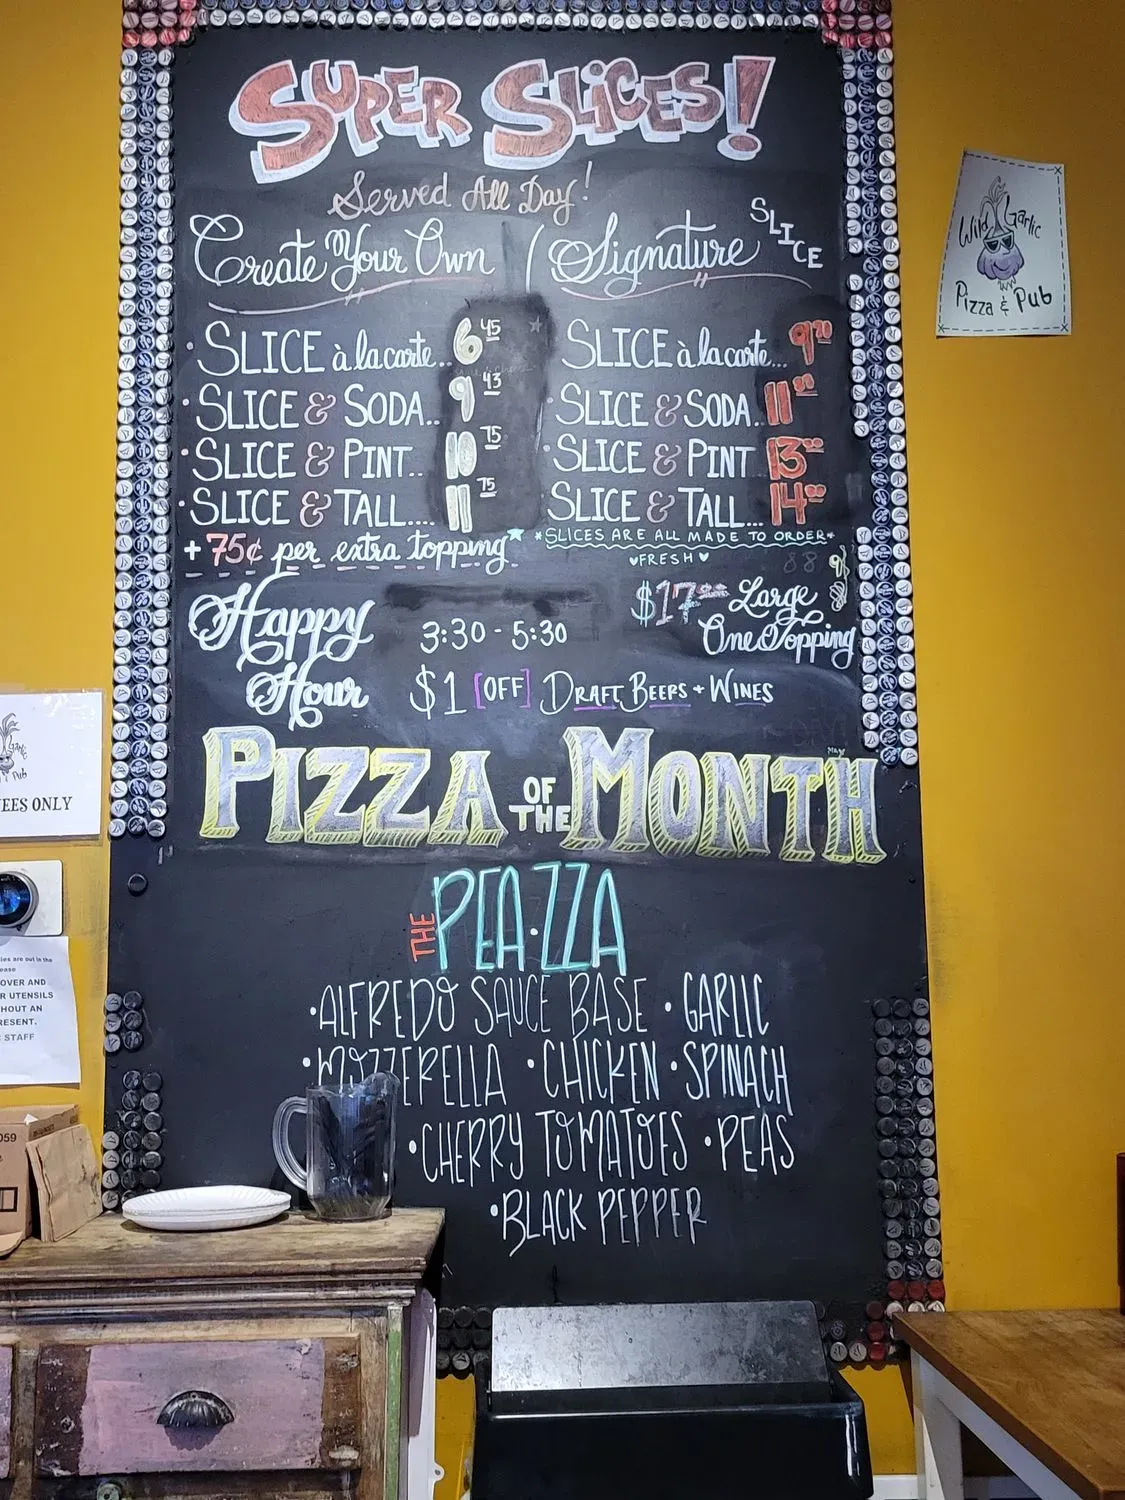 SUPER SLICES!
Served All Day!
Create Your Own
SLICE à la carte... 6 45
SLICE & SODA.. 9 43
SLICE & PINT.. 10 75
SLICE & TALL.... 11 75
+ 75¢ per extra topping
Signature SLICE
SLICE à la carte...
SLICE & SODA.. 11
SLICE & PINT 13
SLICE & TALL... 14
*SLICES ARE ALL MADE TO ORDER*
♥FRESH♥
Happy Hour
3:30 - 5:30
$1 [OFF] DRAFT BEERS + WINES
$17 Large
One Topping
PIZZA OF THE MONTH
THE PEA·ZZA
•ALFREDO SAUCE BASE •GARLIC
•MOZZERELLA •CHICKEN •SPINACH
•CHERRY TOMATOES •PEAS
•BLACK PEPPER
Wild Garlic
Pizza & Pub
Pub
EES ONLY
ies are out in the
ease
OVER AND
R UTENSILS
HOUT AN
RESENT.
STAFF
059